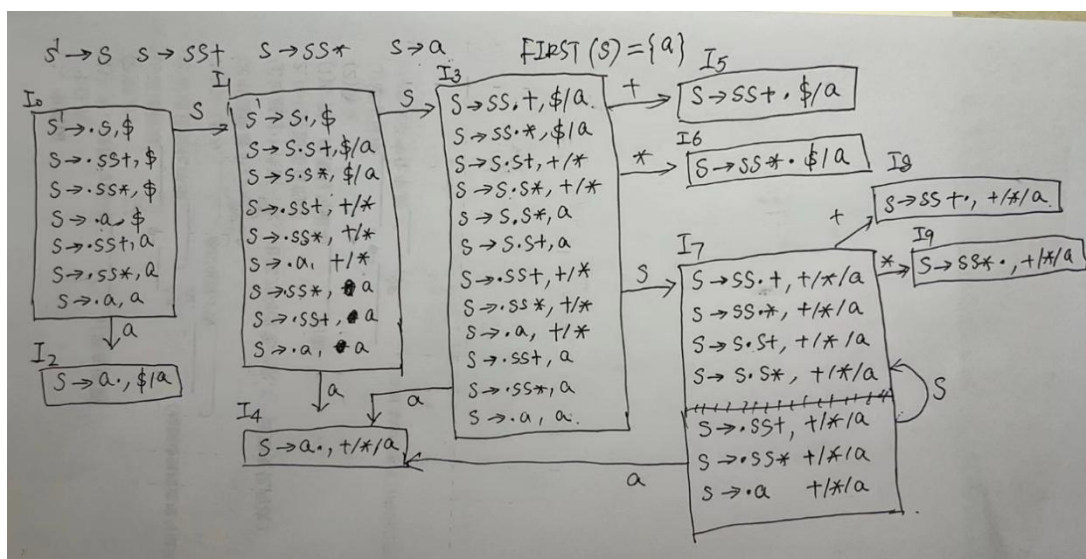 S' → S   S → SS+   S → SS*   S → a   FIRST(S) = {a}
I0
S' → ·S, $
S → ·SS+, $
S → ·SS*, $
S → ·a, $
S → ·SS+, a
S → ·SS*, a
S → ·a, a
S
a
I2
S → a·, $/a
I1
S' → S·, $
S → S·S+, $/a
S → S·S*, $/a
S → ·SS+, +/*
S → ·SS*, +/*
S → ·a, +/*
S → ·SS*, a
S → ·SS+, a
S → ·a, a
S
a
I4
S → a·, +/*/a
I3
S → SS·+, $/a
S → SS·*, $/a
S → S·S+, +/*
S → S·S*, +/*
S → S·S*, a
S → S·S+, a
S → ·SS+, +/*
S → ·SS*, +/*
S → ·a, +/*
S → ·SS+, a
S → ·SS*, a
S → ·a, a
a
+
I5
S → SS+· $/a
*
I6
S → SS*· $/a
S
I7
S → SS·+, +/*/a
S → SS·*, +/*/a
S → S·S+, +/*/a
S → S·S*, +/*/a
S → ·SS+, +/*/a
S → ·SS* +/*/a
S → ·a +/*/a
S
a
+
I8
S → SS+·, +/*/a
*
I9
S → SS*·, +/*/a